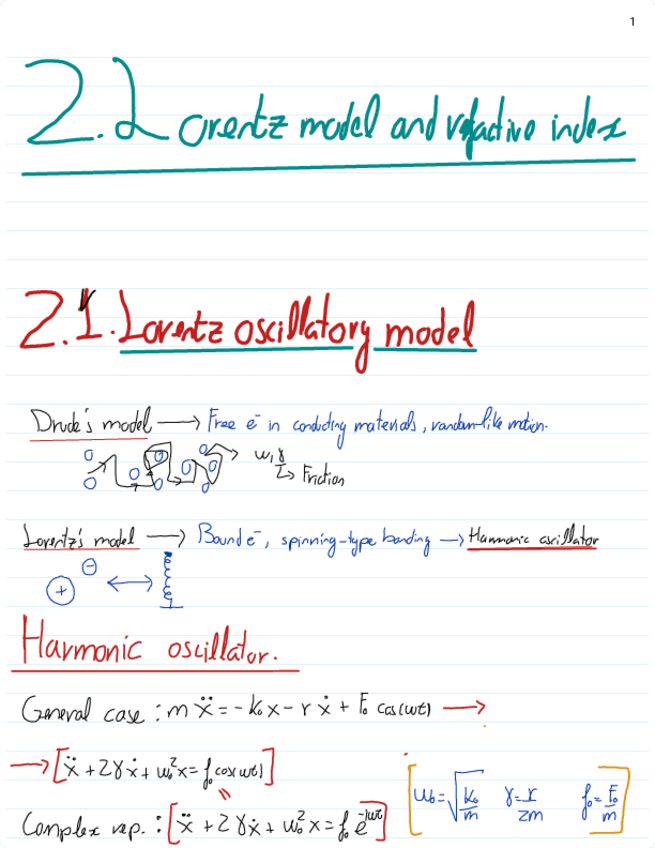 1
2. Lorentz model and refractive index
2.1. Lorentz oscillatory model
Drude's model → Free e⁻ in conducting materials, random-like motion.
w, γ
↳ Friction
Lorentz's model → Bound e⁻, spinning-type bonding → Harmonic oscillator
+ ⊖ ↔
Harmonic oscillator.
General case : m ẍ = - k₀ x - r ẋ + F₀ cos(wt) →
→ [ẍ + 2γẋ + w₀²x = f₀ cos(wt)]
Complex rep. : [ẍ + 2γẋ + w₀²x = f₀ e^-iwt]
[w₀ = √k₀/m γ = r/2m f₀ = F₀/m]